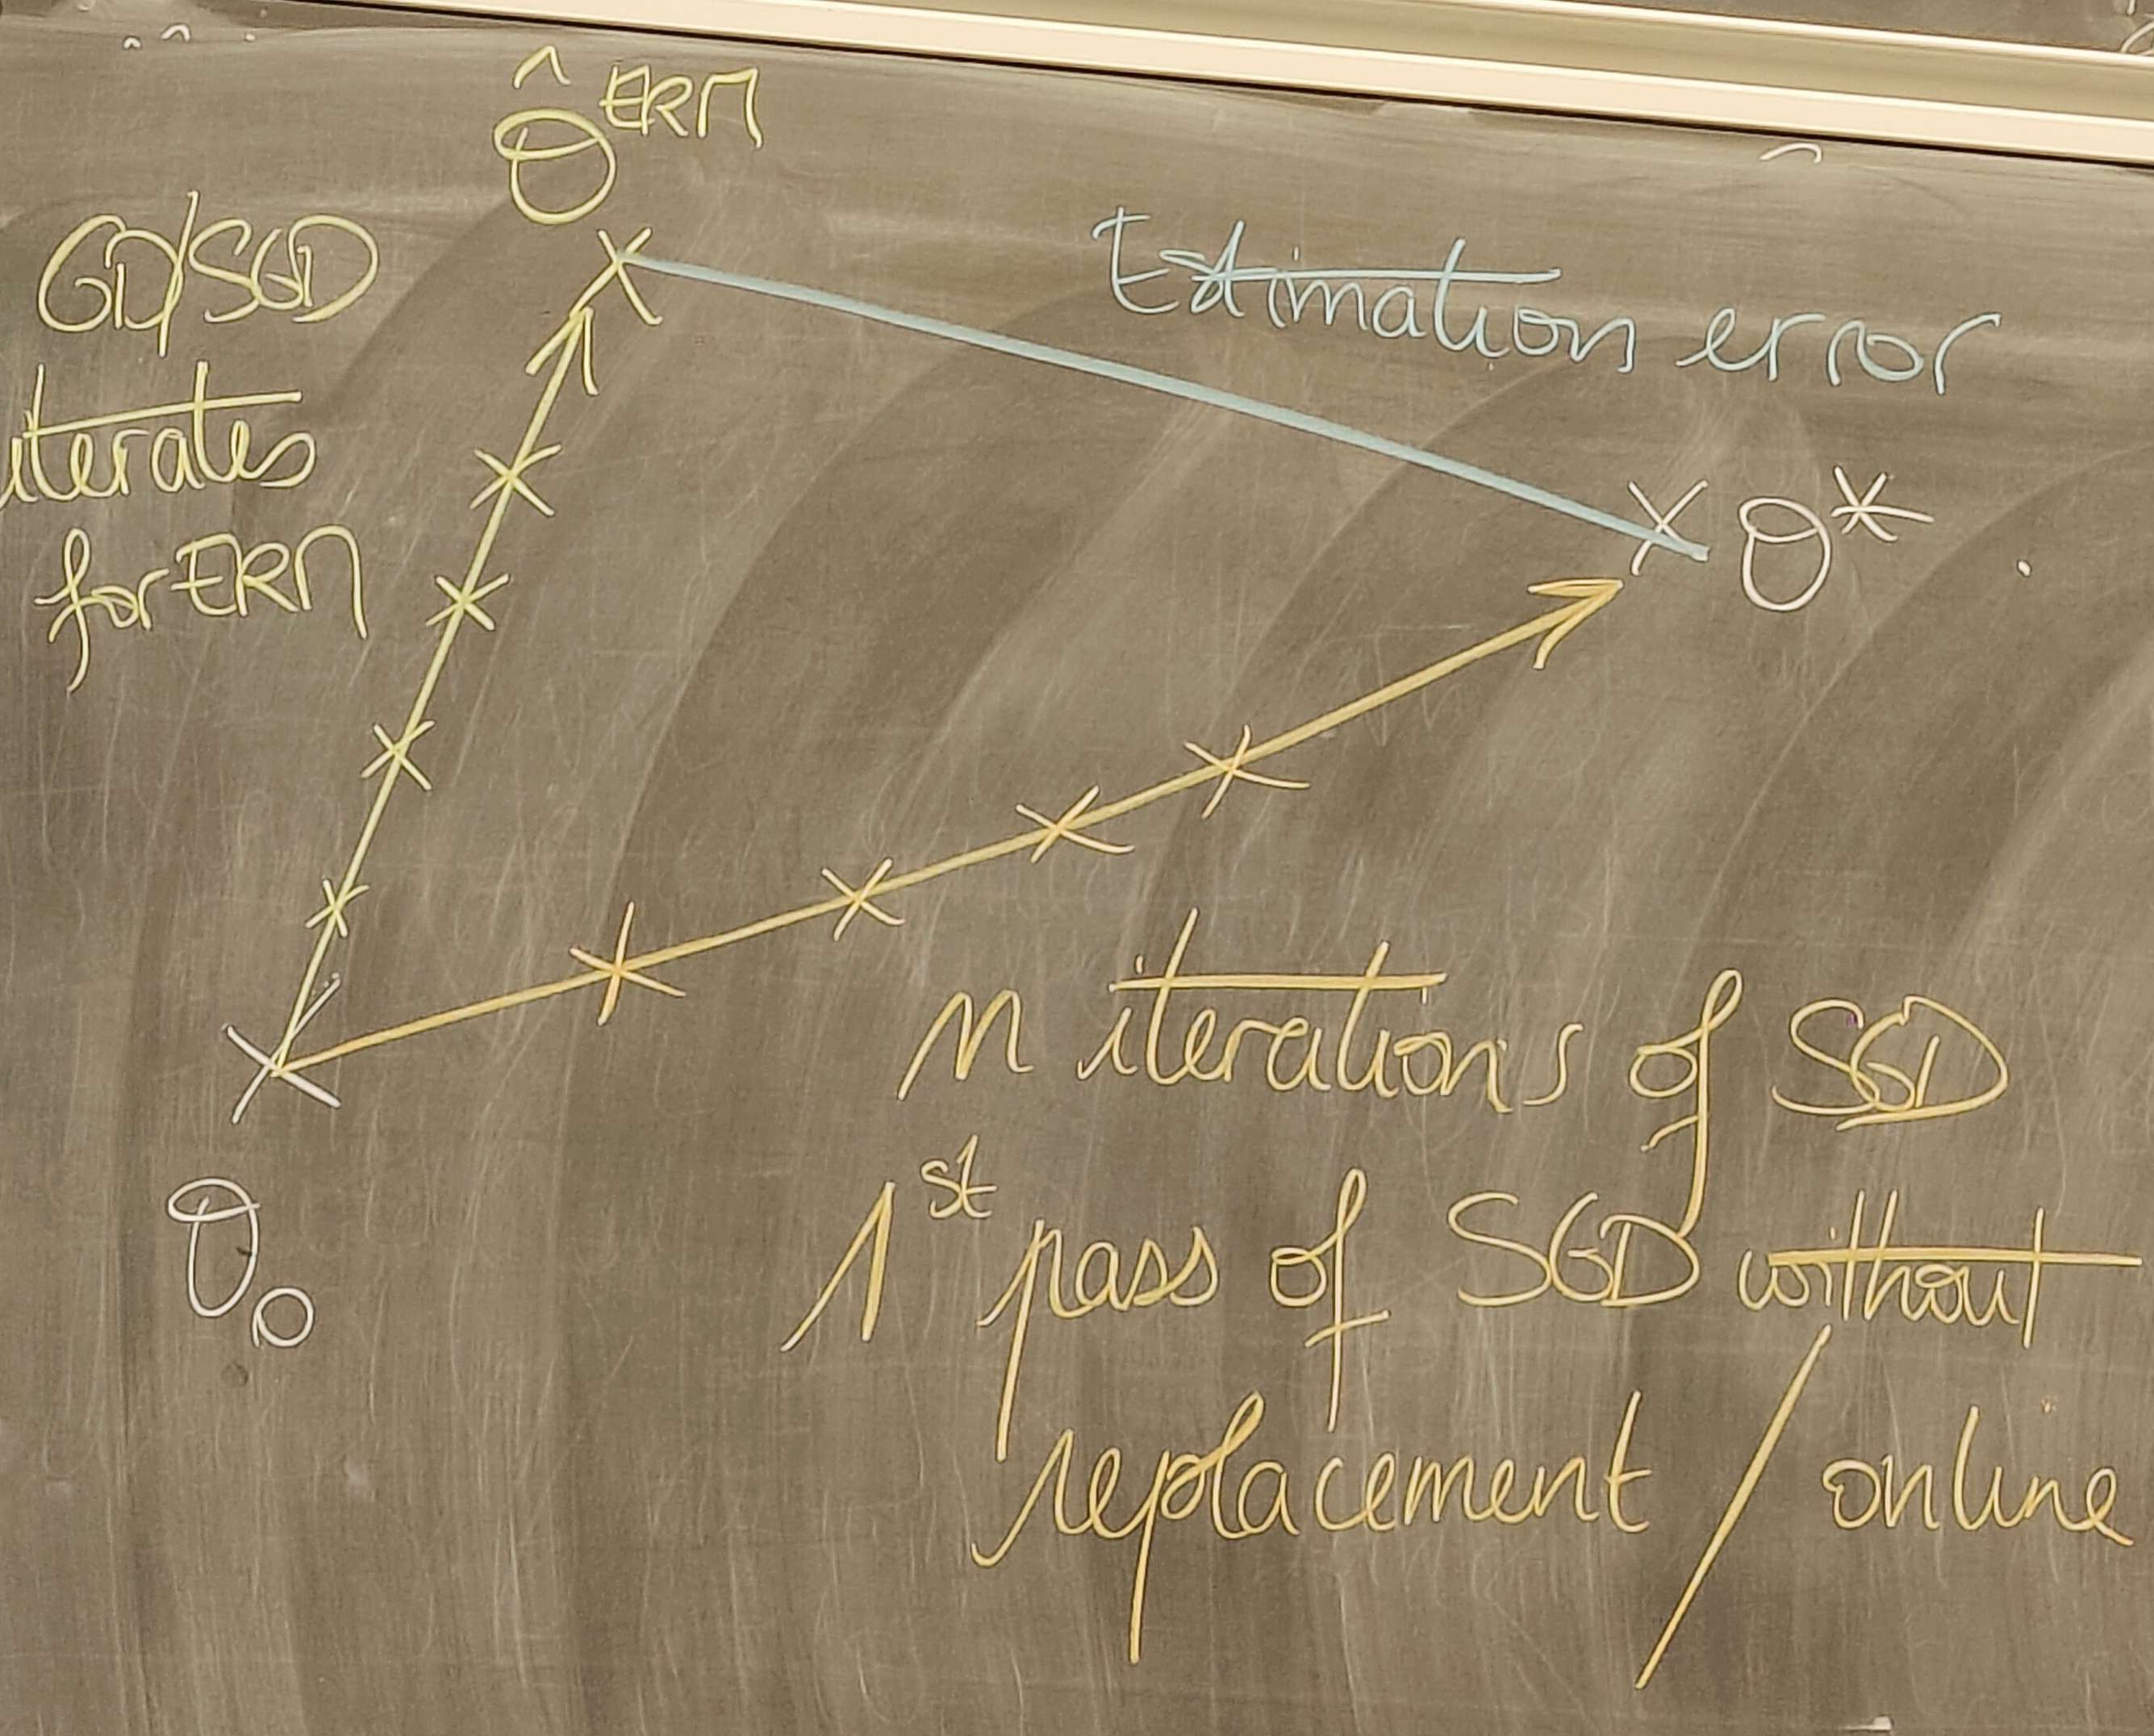 θ̂^ERM
GD/SGD
iterates
for ERM
Estimation error
θ*
θ₀
n iterations of SGD
1st pass of SGD without
replacement / online